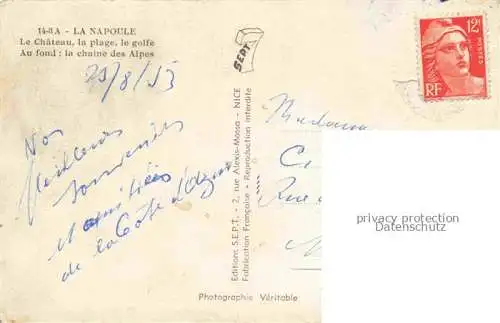 14-8A - LA NAPOULE
Le Château, la plage, le golfe
Au fond : la chaine des Alpes
29/8/53
Nos
Meilleurs
souvenirs
et amitiés
de la Côte d'Azur
SEPT
Editions S.E.P.T. - 2, rue Alexis-Mossa - NICE
Fabrication Française - Reproduction interdite
Photographie Véritable
12F
POSTES
RF
Madame
Rue
privacy protection
Datenschutz